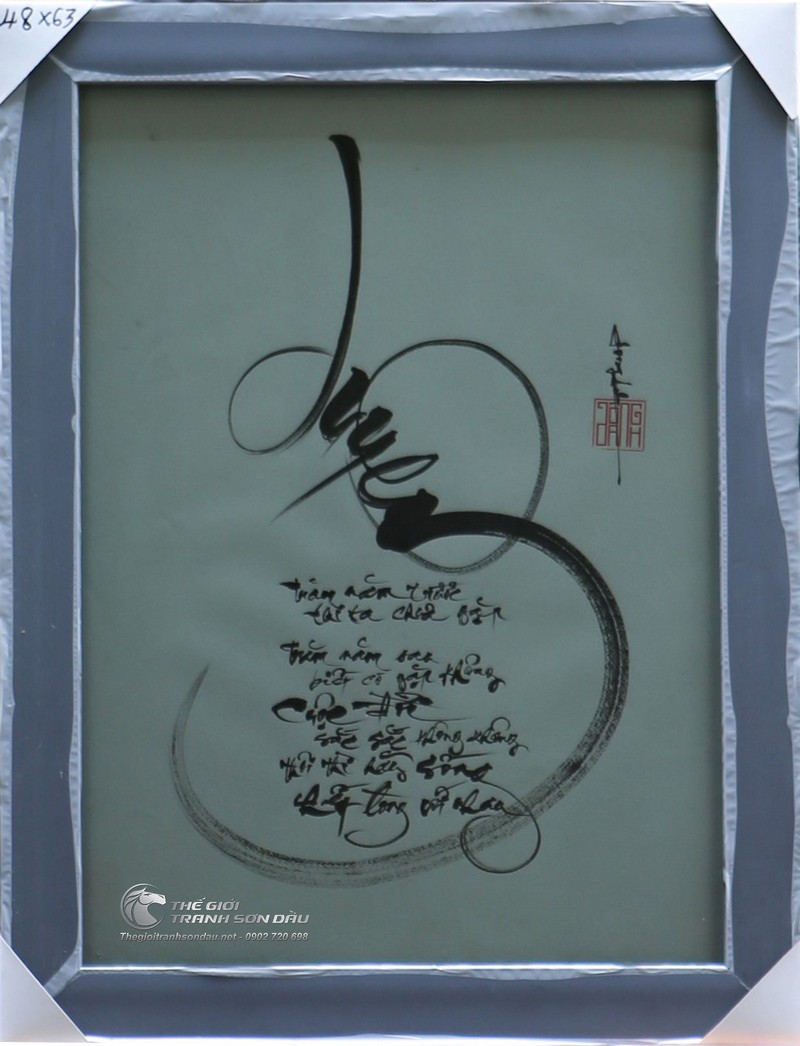 48x63
Duyên
Trăm năm trước
thì ta chưa gặp
Trăm năm sau
biết có gặp không
Cuộc đời
sắc sắc không không
Thôi thì hãy sống
hết lòng với nhau
THẾ GIỚI
TRANH SƠN DẦU
Thegioitranhsondau.net - 0902 720 698